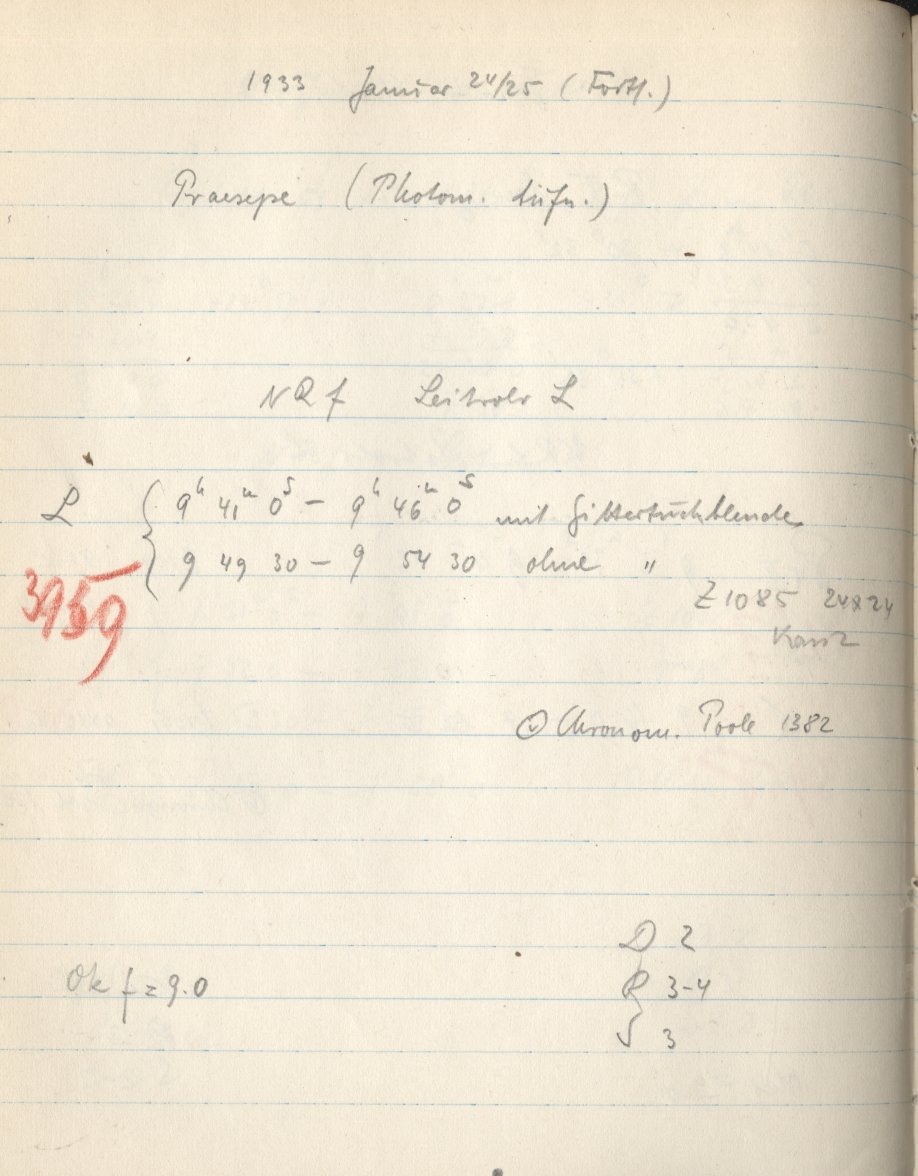 1933 Januar 24/25 (Forts.)
Praesepe (Photom. Aufn.)
NRf Leitrohr L
L 9h 41m 0s – 9h 46m 0s mit Gittertuchblende
9 49 30 – 9 54 30 ohne "
3959
Z 1085 24x24
Kranz
Chronom. Poole 1382
D 2
Ok f = 9.0 R 3-4
S 3